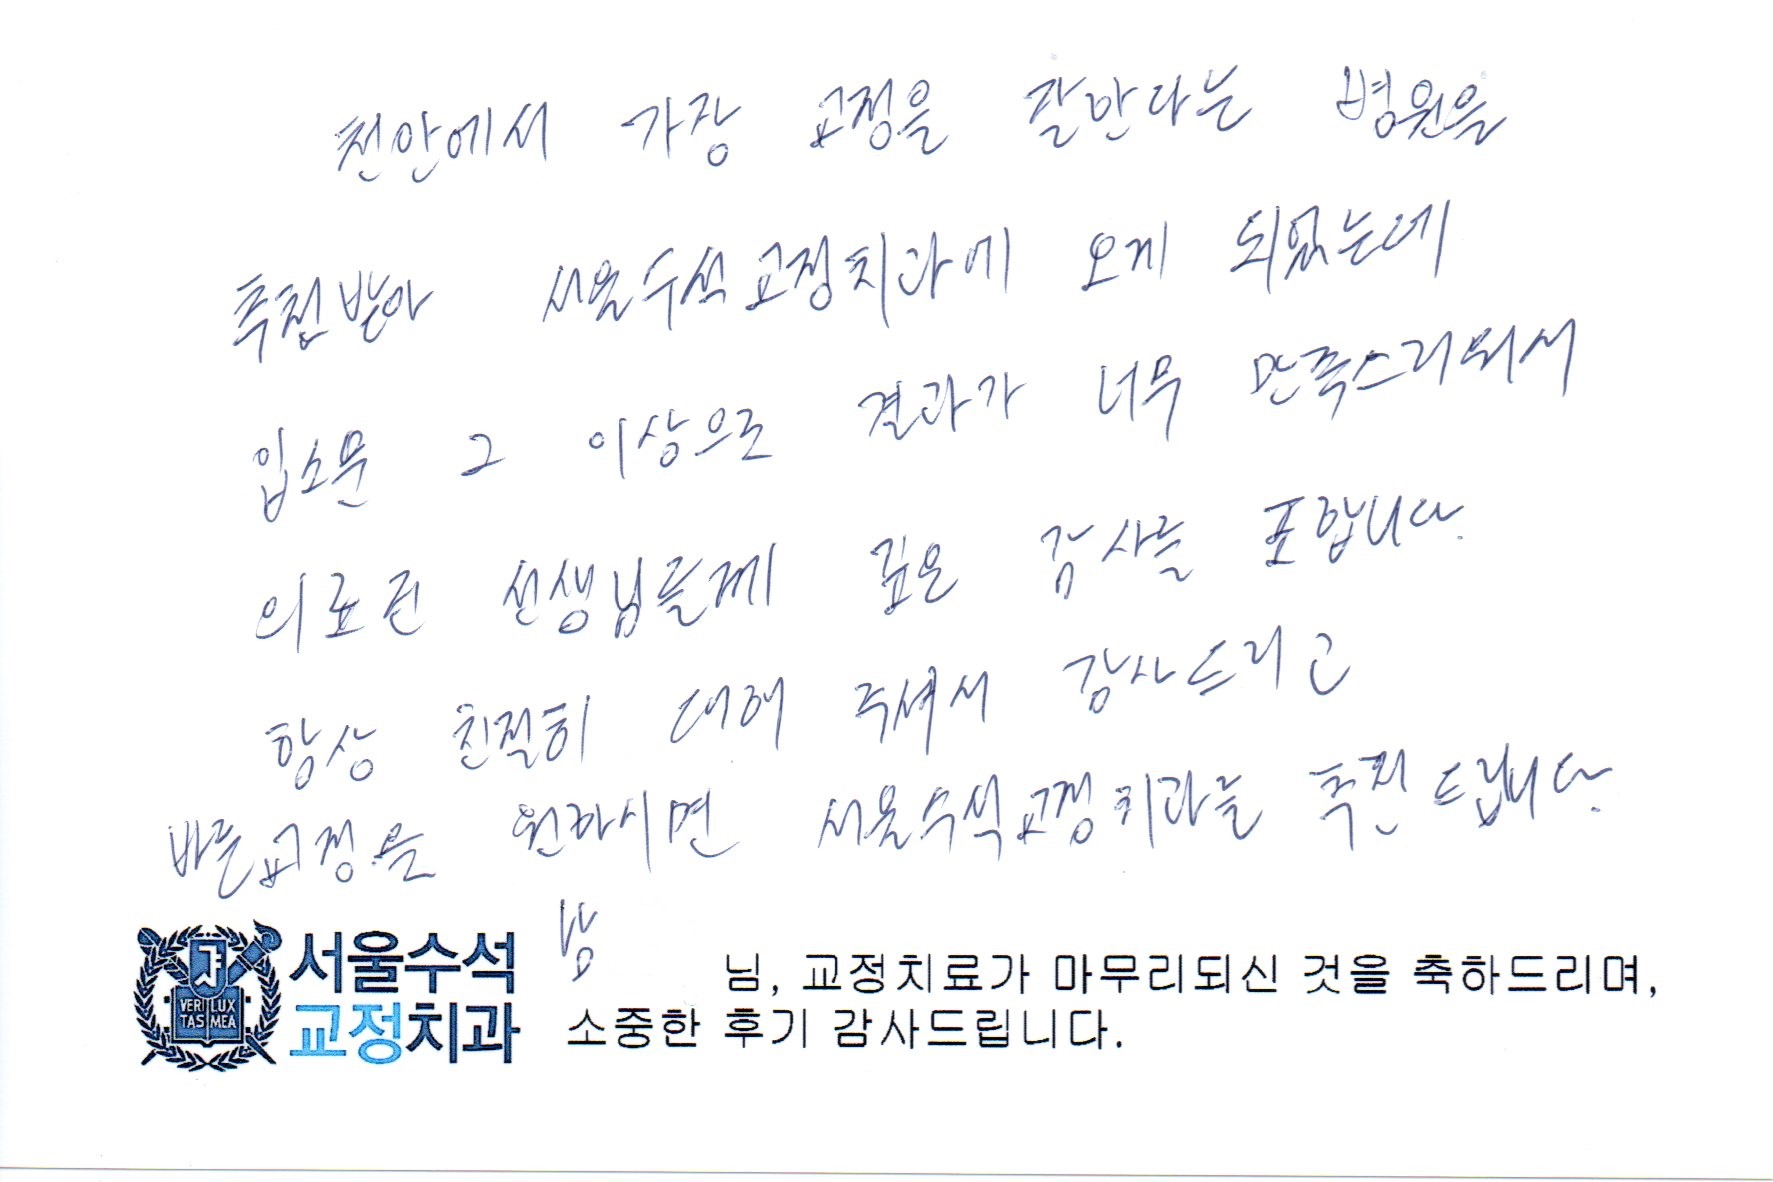 천안에서 가장 교정을 잘한다는 병원을
추천받아 서울수석교정치과에 오게 되었는데
입소문 그 이상으로 결과가 너무 만족스러워서
의료진 선생님들께 깊은 감사를 표합니다.
항상 친절히 대해 주셔서 감사드리고
바른교정을 원하시면 서울수석교정치과를 추천드립니다.
남
서울수석
교정치과
VERI LUX
TAS MEA
님, 교정치료가 마무리되신 것을 축하드리며,
소중한 후기 감사드립니다.